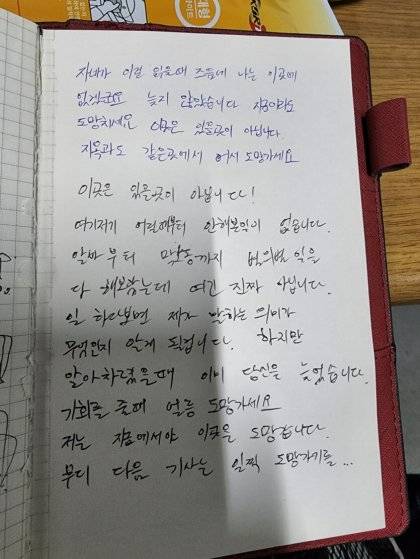 자네가 이걸 읽을때 즈음에 나는 이곳에
없겠군요 늦지 않았습니다 지금이라도
도망치세요 이곳은 있을곳이 아닙니다
지옥과도 같은곳에서 어서 도망가세요
이곳은 있을곳이 아닙니다!
여기저기 어린애부터 안해본일이 없습니다.
알바부터 막노동까지 별의별 일을
다 해보았는데 여긴 진짜 아닙니다.
일 하다보면 제가 말하는 의미가
무엇인지 알게 됩니다. 하지만
알아차렸을때 이미 당신은 늦었습니다.
기회를 줄때 얼른 도망가세요
저는 지금에서야 이곳을 도망갑니다.
부디 다음 기사는 일찍 도망가기를...